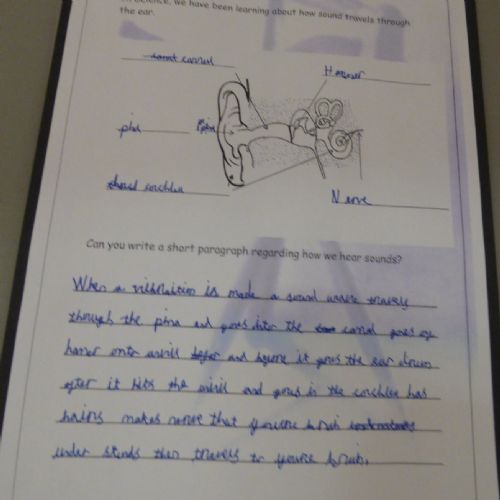 In Science, we have been learning about how sound travels through
the ear.
cannal
Hamer
pina
pina
cochlea
Nerve
Can you write a short paragraph regarding how we hear sounds?
When a vibration is made a sound wave travels
through the pina and goes into the canal goes
hamer onto anvil and before it goes the ear drum
after it hits the anvil and goes in the cochlea has
hairs makes nerve that youre brain
under stands then travels to youre brain.